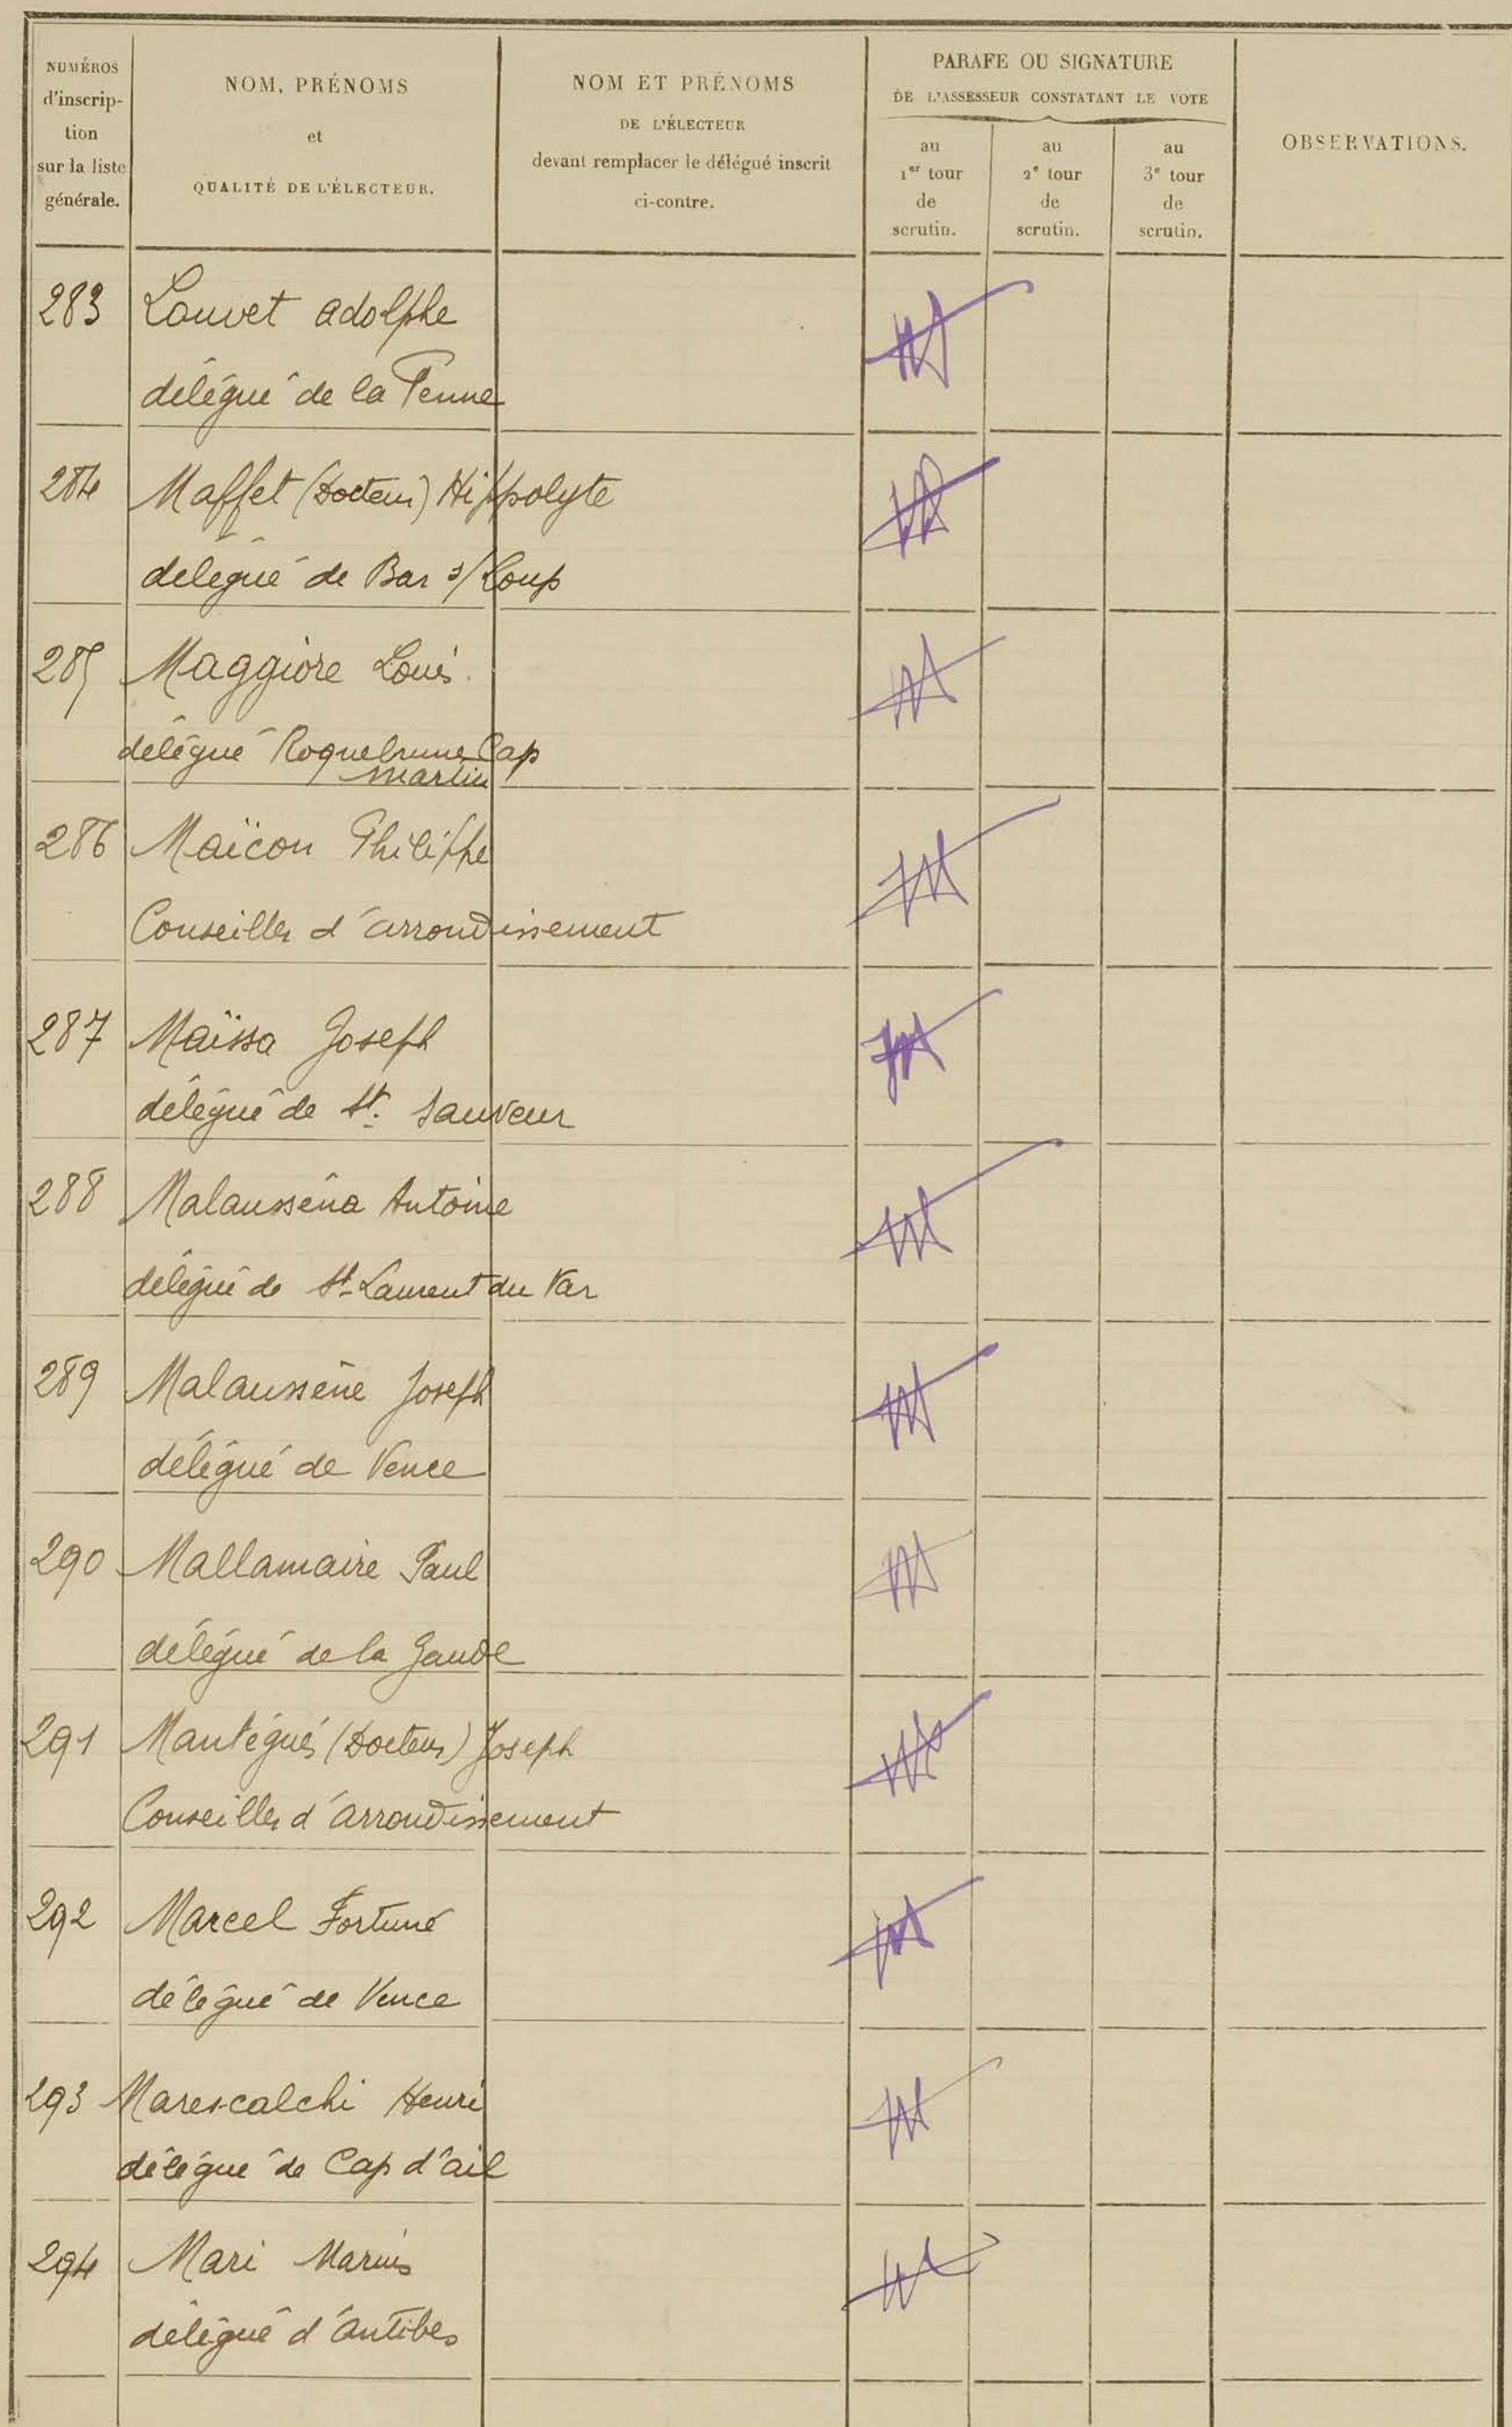 NUMÉROS
d'inscrip-
tion
sur la liste
générale.
NOM, PRÉNOMS
et
QUALITÉ DE L'ÉLECTEUR.
NOM ET PRÉNOMS
DE L'ÉLECTEUR
devant remplacer le délégué inscrit
ci-contre.
PARAFE OU SIGNATURE
DE L'ASSESSEUR CONSTATANT LE VOTE
au
1er tour
de
scrutin.
au
2e tour
de
scrutin.
au
3e tour
de
scrutin.
OBSERVATIONS.
283 Louvet Adolphe
délégué de la Penne
284 Maffet (Docteur) Hippolyte
délégué de Bar s/Loup
285 Maggiore Louis.
délégué Roquebrune Cap
Martin
286 Maïcon Philippe
Conseiller d'arrondissement
287 Maïssa Joseph
délégué de St. Sauveur
288 Malausséna Antoine
délégué de St-Laurent du Var
289 Malaussène Joseph
délégué de Vence
290 Mallamaire Paul
délégué de la Gaude
291 Mantégués (Docteur) Joseph
Conseiller d'arrondissement
292 Marcel Fortuné
délégué de Vence
293 Marescalchi Henri
délégué de Cap d'ail
294 Mari Marius
délégué d'Antibes